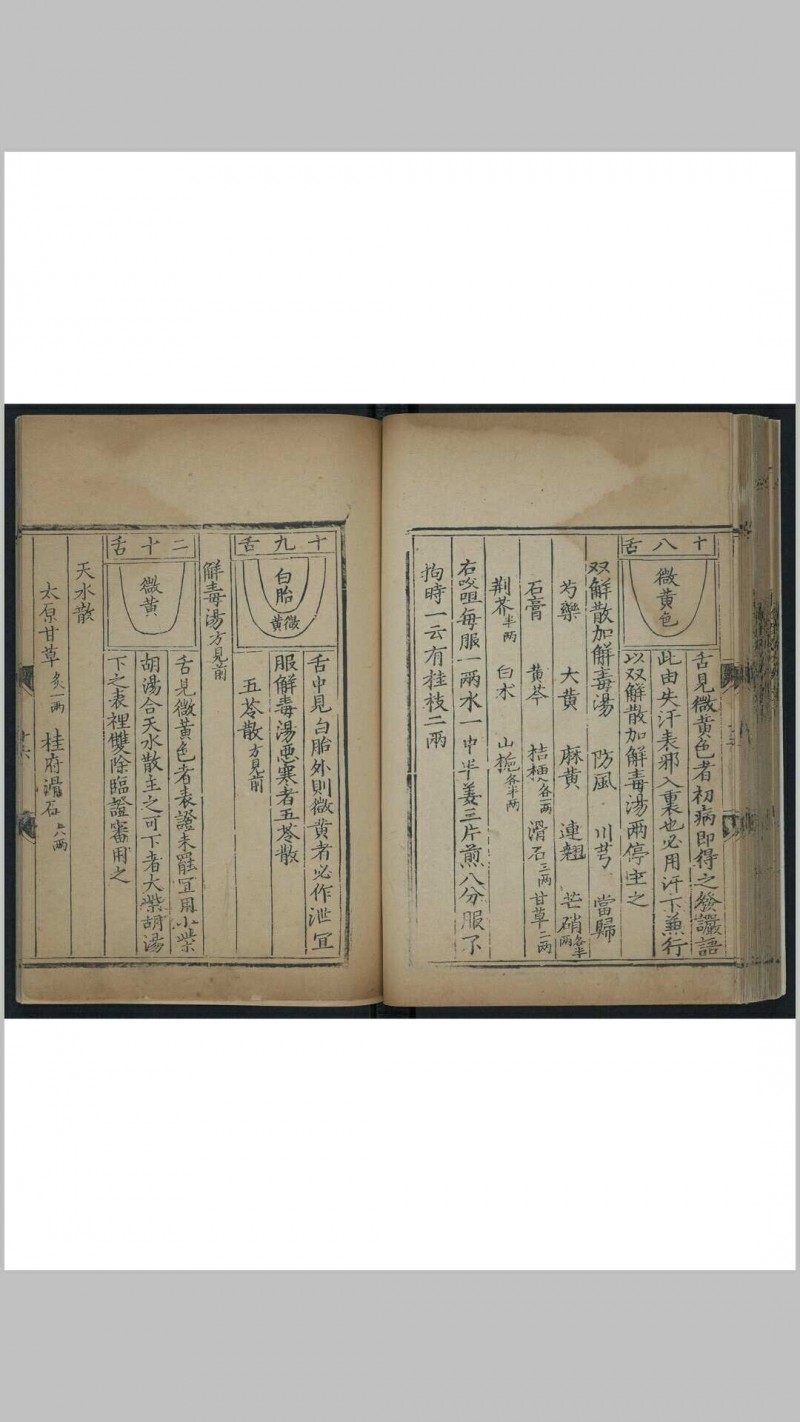 十八舌
微黃色
舌見微黃色者初病即得之發讝語
此由失汗表邪入裏也必用汗下兼行
以双解散加解毒湯兩停主之
双解散加解毒湯 防風 川芎 當歸
芍藥 大黃 麻黃 連翹 芒硝各半兩
石膏 黃芩 桔梗各一兩 滑石三兩 甘草二兩
荆芥半兩 白朮 山梔各半兩
右㕮咀每服一兩水一中半姜三片煎八分服不
拘時一云有桂枝二兩
十九舌
白胎
微黃
舌中見白胎外則微黃者必作泄宜
服解毒湯惡寒者五苓散
五苓散方見前
解毒湯方見前
二十舌
微黃
舌見微黃色者表證未罷宜用小柴
胡湯合天水散主之可下者大柴胡湯
下之表裡雙除臨證審用之
天水散
太原甘草炙一兩 桂府滑石六兩